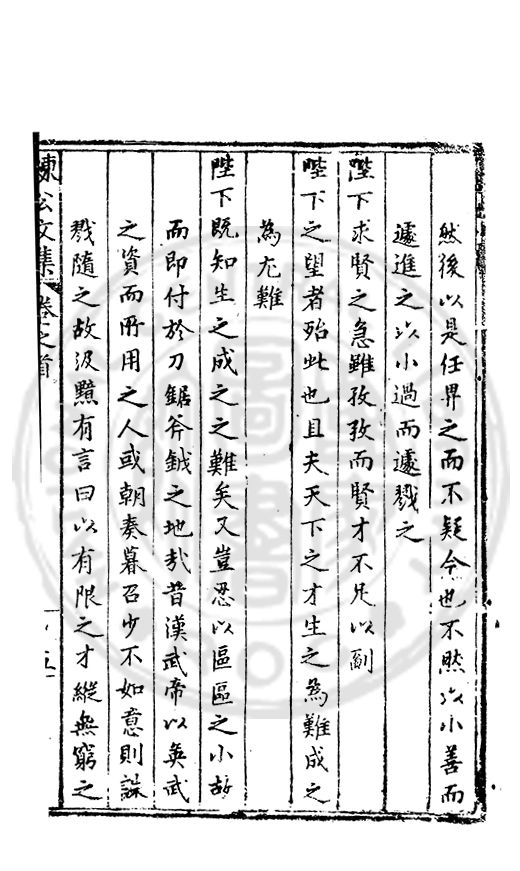 然後以是任畀之而不疑今也不然以小善而
遽進之以小過而遽戮之
陛下求賢之急雖孜孜而賢才不足以副
陛下之望者殆此也且夫天下之才生之為難成之
為尤難
陛下既知生之成之之難矣又豈忍以區區之小故
而即付於刀鋸斧鉞之地哉昔漢武帝以英武
之資而所用之人或朝奏暮召少不如意則誅
戮隨之故汲黯有言曰以有限之才縱無窮之
陳公文集 卷之首
五